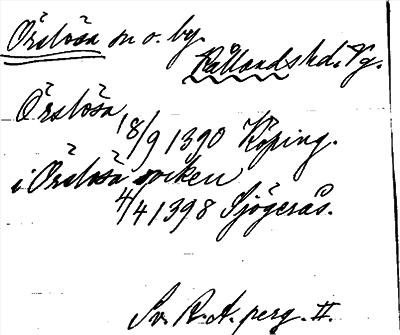 Örslösa sn o. by.
Kållandshd. Vg.
Örslösa 18/9 1390 Köping.
i Örslösa soken 4/4 1398 Sjögerås.
Sv. R. A. perg. II.